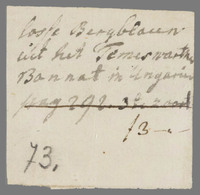 losse Bergblauw
uit het Temeswarther
Bannat in Ungarien
pag 292.
f3-.-
73.